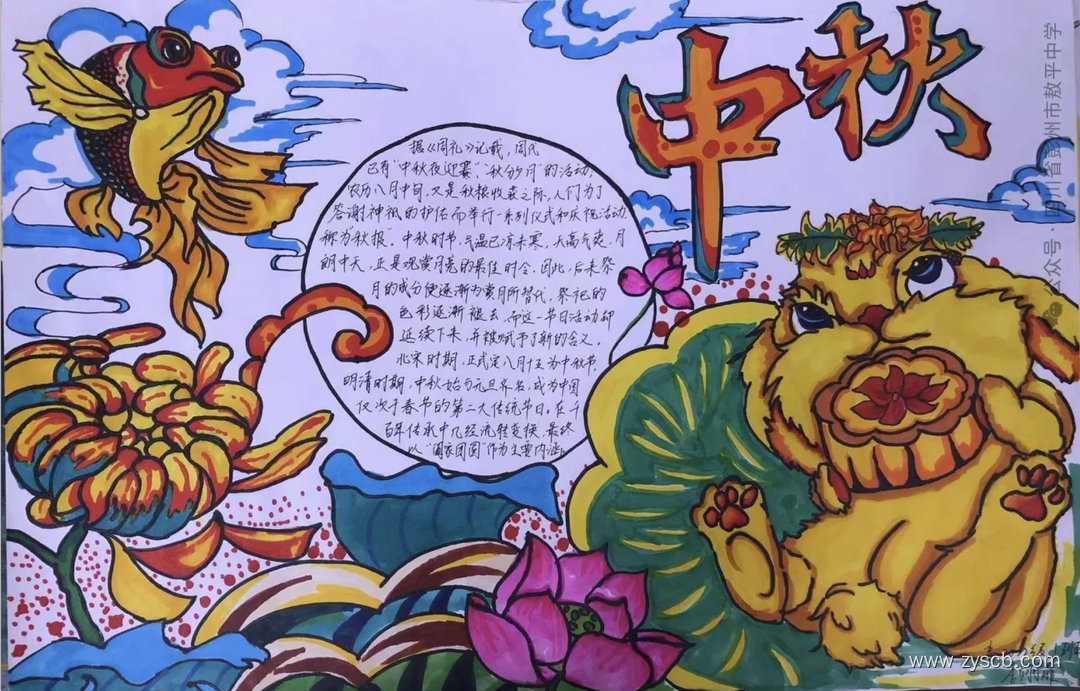 中秋
据《周礼》记载，周代
已有“中秋夜迎寒”、“秋分夕月”的活动；
农历八月中旬，又是秋粮收获之际，人们为了
答谢神祇的护佑而举行一系列仪式和庆祝活动
称为“秋报”。中秋时节，气温已凉未寒，天高气爽，月
朗中天，正是观赏月亮的最佳时令。因此，后来祭
月的成分便逐渐为赏月所替代，祭祀的
色彩逐渐褪去，而这一节日活动却
延续下来，并被赋予了新的含义。
北宋时期，正式定八月十五为中秋节，
明清时期，中秋始与元旦齐名，成为中国
仅次于春节的第二大传统节日。在千
百年传承中几经流转变换，最终
以“阖家团圆”作为主要内涵。
公众号·四川省彭州市敖平中学
www.zyscb.com